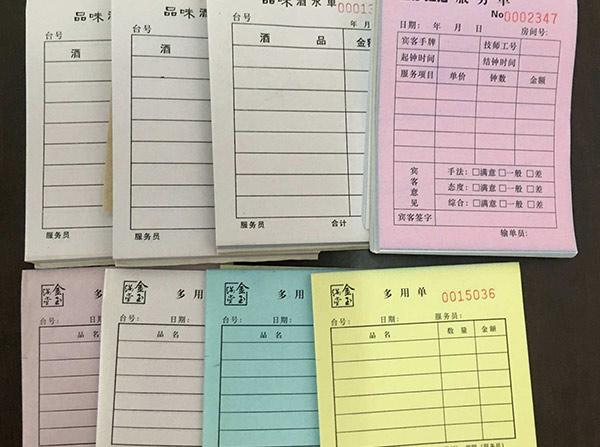 品味酒
台号:
酒
服务员
品味酒
台号:
酒
服务员
品味酒水单
00013
台号:
年 月
酒 品 金额
服务员 合计
服务单
No 0002347
日期: 年 月 日 房间号:
宾客手牌 技师工号
起钟时间 结钟时间
服务项目 单价 钟数 金额
宾客意见
手法: □满意□一般 □差
态度: □满意□一般 □差
综合: □满意□一般 □差
宾客签字
输单员:
金玉满堂
多
台号: 日期:
品名
金玉满堂
多用
台号: 日期:
品名
金玉满堂
多用
台号: 日期:
品名
金玉满堂
多用单
0015036
台号: 日期: 服务员:
品名 数量 金额